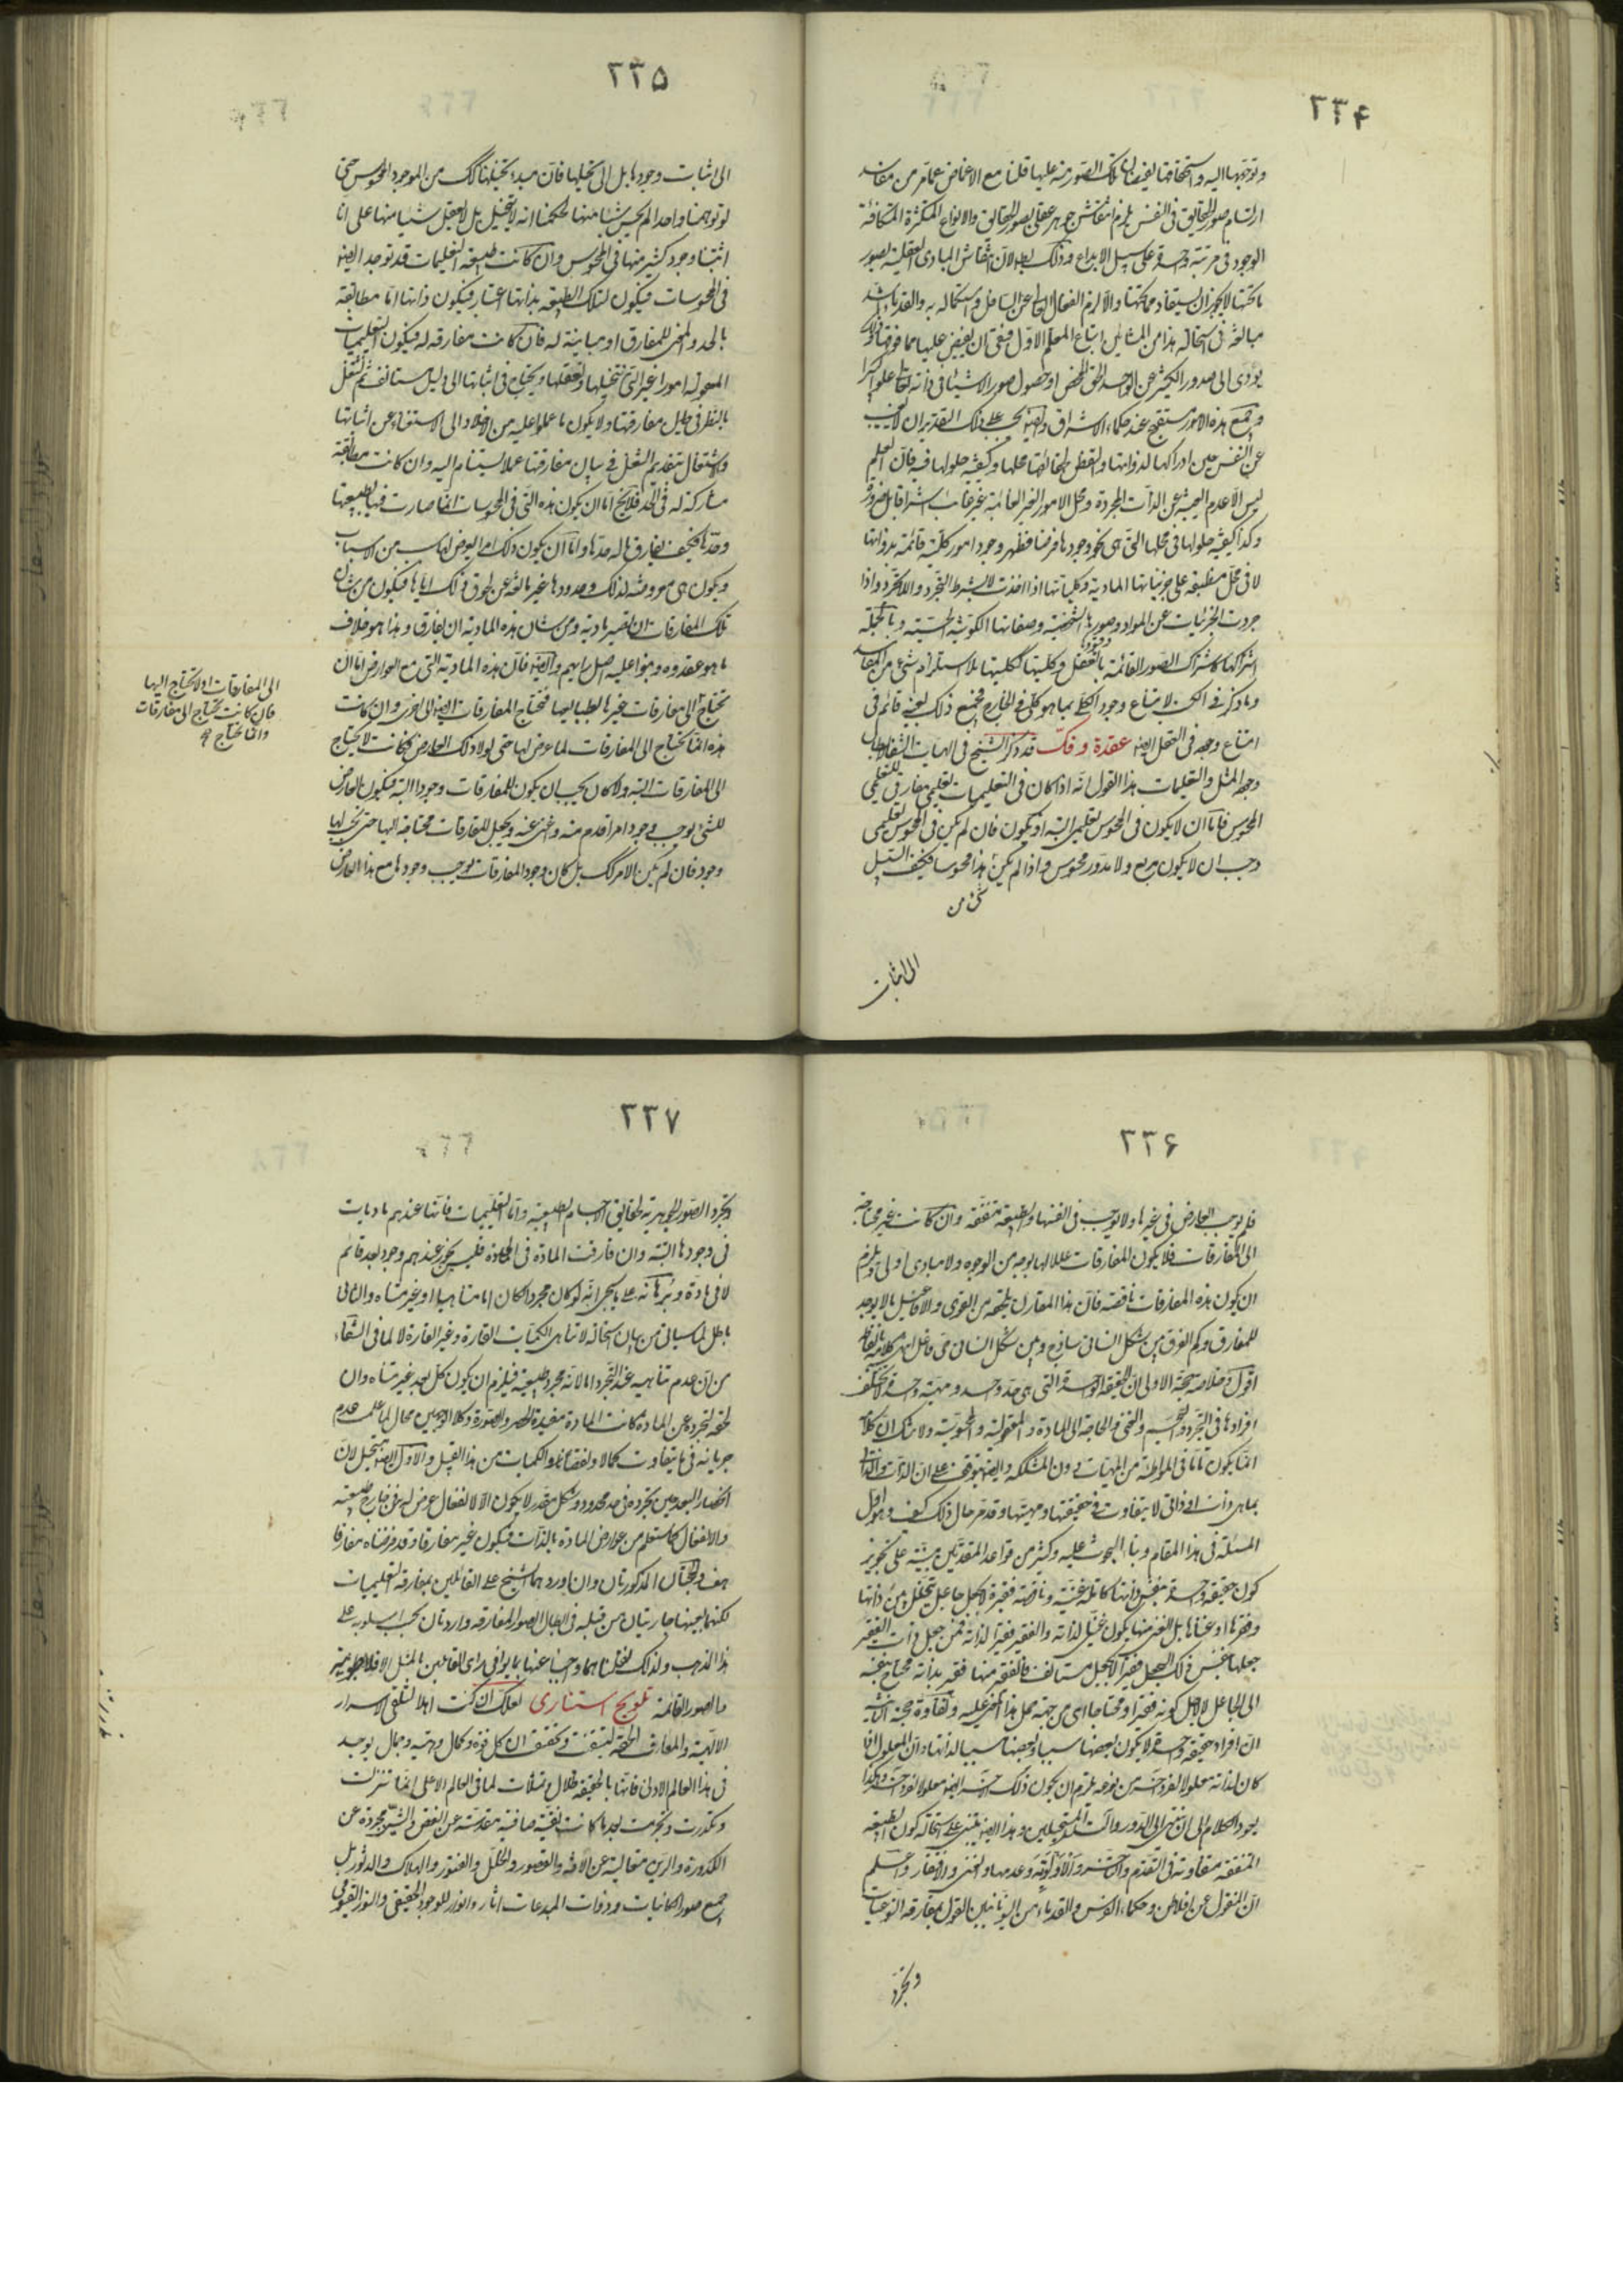 ٢٣۴
وتوجهها اليه واستحقاقها لفيضان تلك الصور منه عليها قلنا مع الاغماض عما مر من مفاسد
ارتسام صور الحقايق فى النفس يلزم انتقاش جوهر عقلى بصور الحقايق والانواع المتكثرة المتكافئة
الوجود فى مرتبة واحدة على سبيل الابداع وذلك لان انتقاش المبادى العقلية بصور
ما تحتها لا يجوز ان يستفاد مما تحتها والا لزم انفعال العالى عن السافل واستكماله به والقدماء اشد
مبالغة فى استحالة هذا من المشائين اتباع المعلم الاول فبقى ان يفيض عليها مما فوقها وذلك
يودى الى صدور الكثير عن الواحد الحق المحض او حصول صور الاشياء فى ذاته تعالى علوا كبيرا
وجميع هذه الامور مستقبح عند حكماء الاشراق وايضا يجب على ذلك التقدير ان لا يغيب
عن النفس حين ادراكها لذواتها والتفطن لحقائقها محلها وكيفية حلولها فيه فان العلم
ليس الا عدم الغيبة عن الذات المجردة ومحل الامور الغير الغائبة غير غائب اشراقا بل ضرورة
وكذا كيفية حلولها فى محلها التى هى نحو وجودها فرضا فظهر وجود امور كلية قائمة بذواتها
لا فى محل منطبقة على جزئياتها المادية وكلياتها اذا اخذت لا بشرط التجرد واللاتجرد واذا
جردت الجزئيات عن المواد وصورها الشخصية وصفاتها الكونية الحسية وبالجملة
اشتراكها كاشتراك الصور القائمة بالعقل وكليتها ككليتها بلا استلزام شئ من المفاسد
وما ذكر فى الكتب لامتناع وجود الكلى بما هو كلى فى الخارج فجميع ذلك بعينه قائم فى
امتناع وجوده فى العقل ايضا عقدة وفك قد ذكر الشيخ فى الهيات الشفا لابطال
وجود المثل والتعليمات هذا القول انه اذا كان فى التعليميات تعليمى مفارق للتعليمى
المحسوس فاما ان لا يكون فى المحسوس تعليمى البتة او يكون فان لم يكن فى المحسوس تعليمى
وجب ان لا يكون مربع ولا مدور محسوس واذا لم يكن شئ من هذا محسوسا فكيف السبيل
الى اثبات
٢٣۵
الى اثبات وجودها بل الى تخيلها فان مبدء تخيلها كذلك من الموجود المحسوس حتى
لو توهمنا واحدا لم يحس شيئا منها لحكمنا انه لا يتخيل بل لا يعقل شيئا منها على انا
اثبتنا وجود كثير منها فى المحسوس وان كانت طبيعة التعليمات قد توجد ايضا
فى المحسوسات فيكون لتلك الطبيعة بذاتها اعتبار فيكون ذاتها اما مطابقة
بالحد والمعنى للمفارق او مباينة له فان كانت مفارقة له فيكون التعليميات
المعقولة امورا غير التى نتخيلها ونعقلها ونحتاج فى اثباتها الى دليل مستانف ثم نشتغل
بالنظر فى حال مفارقتها ولا يكون ما عملوا عليه من الاخلاد الى الاستغناء عن اثباتها
والاشتغال بتقديم الشغل فى بيان مفارقتها عملا يستنام اليه وان كانت مطابقة
مشاركة له فى الحد فلا يخ اما ان يكون هذه التى فى المحسوسات انما صارت فيها لطبيعتها
وحدها فكيف يفارق ما له حدها واما ان يكون ذلك امرا يعرض لها بسبب من الاسباب
ويكون هى معروضة لذلك وحدودها غير مانعة عن لحوق ذلك اياها فيكون من شان
تلك المفارقات ان تصير مادية ومن شان هذه المادية ان تفارق وهذا هو خلاف
ما هو عقدوه وبنوا عليه اصل رايهم وايضا فان هذه المادية التى مع العوارض اما ان
تحتاج الى مفارقات غيرها لطبايعها فتحتاج المفارقات ايضا الى اخرى وان كانت
هذه انما تحتاج الى المفارقات لما عرض لها حتى لولا ذلك العارض لكانت لا تحتاج
الى المفارقات البتة ولا كان يجب ان يكون للمفارقات وجودا البتة فيكون العارض
للشئ يوجب وجود امر اقدم منه وغنى عنه ويجعل المفارقات محتاجة اليها حتى يجب لها
وجود فان لم يكن الامر كذلك بل كان وجود المفارقات يوجب وجودها مع هذا العارض
الى المفارقات او لا تحتاج اليها
فان كانت تحتاج الى مفارقات
وانما تحتاج
٢٣۶
فلم يوجب العارض فى غيرها ولا يوجب فى انفسها والطبيعة متفقة وان كانت غير محتاجة
الى المفارقات فلا يكون المفارقات عللا لها بوجه من الوجوه ولا مبادى اولى ويلزم
ان يكون هذه المفارقات ناقصة فان هذا المقارن يلحقه من القوى والافاعيل ما لا يوجد
للمفارق وكم الفرق بين شكل انسانى ساذج وبين شكل انسان حى فاعل انتهى كلامه بالفاظه
اقول وخلاصة حجته الاولى ان الحقيقة الواحدة التى هى ذات حد واحد ومهية واحدة لا يختلف
افرادها فى التجرد والتجسم والغنى والحاجة الى المادة والمعقولية والمحسوسية ولا شك ان كلامه
انما يكون تاما فى المتواطية من المهيات دون المشككة وايضا يتوقف على ان الذات والذاتى
بما هى ذات او ذاتى لا يتفاوت فى حقيقتها ومهيتها وقد مر حال ذلك كيف وهو اول
المسئلة فى هذا المقام وبناء البحوث عليه وكثير من قواعد المتقدمين مبنية على تجويز
كون حقيقة واحدة بنفس ذاتها كاملة غنية وناقصة فقيرة لا بجعل جاعل يتخلل بين ذاتها
وفقرها او غناها بل الغنى منها يكون غنيا لذاته والفقير فقيرا لذاته فمن جعل ذات الفقير
جعلها بنفس ذلك الجعل فقيرا لا بجعل مستانف فالفقير منها فقير بذاته محتاج بنفسه
الى الجاعل لا لاجل كونه فقيرا ومحتاجا اى من جهة حمل هذا المعنى عليه ونقاوة حجته الثانية
ان افراد حقيقة واحدة لا يكون بعضها سببا وبعضها مسببا لذاتها وان المعلول اذا
كان لذاته معلولا لفرد اخر من نوعه يلزم ان يكون ذلك الاخر ايضا معلولا لفرد اخر وهكذا
يعود الكلام الى ان ينتهى الى الدور او التسلسل المستحيلين وهذا ايضا يبتنى على استحالة كون الطبيعة
المتفقة متفاوتة فى التقدم والتاخر والاولوية وعدمها والغنى والافتقار واعلم
ان المنقول عن افلاطن وحكماء الفرس والقدماء من اليونانيين القول بمفارقة النوعيات
وتجرد
٢٣٧
وتجرد الصور الجوهرية لحقايق الاجسام الطبيعية واما التعليميات فانها عندهم ماديات
فى وجودها البتة وان فارقت المادة فى الحد فليس يجوز عندهم وجود بعد قائم
لا فى مادة وبرهانه على ما يجرى انه لو كان مجردا لكان اما متناهيا او غير متناه والثانى
باطل لما سياتى من بيان استحالة لا تناهى الكميات القارة وغير القارة لا لما فى الشفاء
من ان عدم تناهيه عند التجرد اما لانه مجرد طبيعته فيلزم ان يكون كل بعد غير متناه وان
لحقه لتجرده عن المادة كانت المادة مفيدة للحصر والصورة وكلا الوجهين محال لما علمت عدم
جريانه فيما يتفاوت كمالا ونقصانا والكميات من هذا القبيل والاول ايضا مستحيل لان
انحصار البعد حين تجرده فى حد محدود وشكل مقدر لا يكون الا لانفعال عرض له من خارج طبيعته
والانفعال كما ستعلم من عوارض المادة بالذات فيكون غير مفارق وقد فرضناه مفارقا
هف والحجتان المذكورتان وان اوردهما الشيخ على القائلين بمفارقة التعليميات
لكنهما بعينهما جاريتان من قبله فى ابطال الصور المفارقة واردتان بحسب اسلوبه على
هذا المذهب ولذلك نقلناهما واجبنا عنهما بما يوافق راى القائلين بالمثل الافلاطونية
والصور القائمة تلويح استنارى لعلك ان كنت اهلا لتلقى الاسرار
الالهية والمعارف الحقة لتيقنت وتحققت ان كل قوة وكمال وهيئة وجمال يوجد
فى هذا العالم الادنى فانها بالحقيقة ظلال وتمثلات لما فى العالم الاعلى انما تنزلت
وتكدرت وتجرمت بعد ما كانت نقية صافية مقدسة عن النقص والشين مجردة عن
الكدورة والرين متعالية عن الافة والقصور والخلل والفتور والهلاك والدثور بل
جميع صور الكائنات وذوات المبدعات اثار وانوار للوجود الحقيقى والنور القيومى